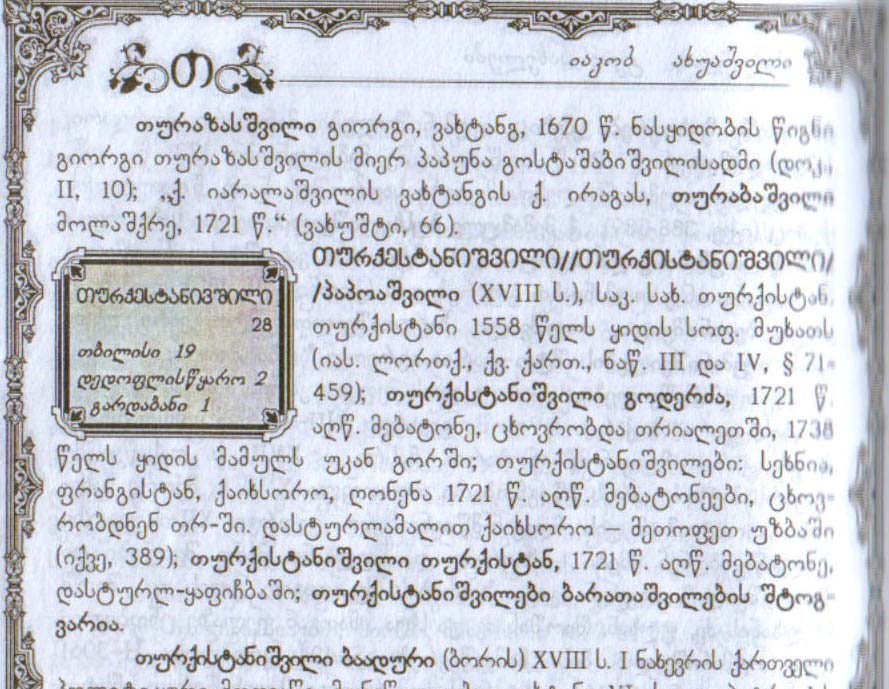 თ
იაკობ ახუაშვილი
თურაზასშვილი გიორგი, ვახტანგ, 1670 წ. ნასყიდობის წიგნი
გიორგი თურაზასშვილის მიერ პაპუნა გოსტაშაბიშვილისადმი (დოკ.
II, 10); „ქ. იარალაშვილის ვახტანგის ქ. ირაგას, თურაბაშვილი
მოლაშქრე, 1721 წ.“ (ვახუშტი, 66).
თურქესტანიშვილი//თურქისტანიშვილი/
/პაპოაშვილი (XVIII ს.), საკ. სახ. თურქისტან.
თურქისტანი 1558 წელს ყიდის სოფ. მუხათს
(იას. ლორთქ., ქვ. ქართ., ნაწ. III და IV, § 71-
459); თურქისტანიშვილი გოდერძა, 1721 წ.
აღწ. მებატონე, ცხოვრობდა თრიალეთში, 1738
თურქესტანივშილი
28
თბილისი 19
დედოფლისწყარო 2
გარდაბანი 1
წელს ყიდის მამულს უკან გორში; თურქისტანიშვილები: სეხნია,
ფრანგისტან, ქაიხსორო, ლონენა 1721 წ. აღწ. მებატონეები, ცხოვ-
რობდნენ თრ-ში. დასტურლამალით ქაიხსორო – მეთოფეთ უზბაში
(იქვე, 389); თურქისტანიშვილი თურქისტან, 1721 წ. აღწ. მებატონე,
დასტურლ-ყაფიჩბაში; თურქისტანიშვილები ბარათაშვილების შტოგ-
ვარია.
თურქისტანიშვილი ბაადური (ბორის) XVIII ს. I ნახევრის ქართველი